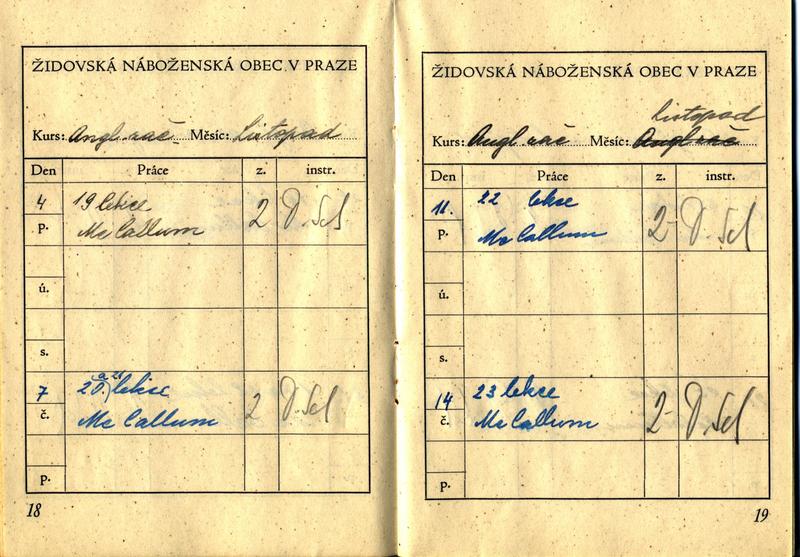 ŽIDOVSKÁ NÁBOŽENSKÁ OBEC V PRAZE
Kurs: Angl. zač. Měsíc: Listopad
Den Práce z. instr.
4 19 lekce
p. Mc Callum 2 D. Sel
ú.
s.
7 20. a 21. lekce
č. Mc Callum 2 D. Sel
p.
18
ŽIDOVSKÁ NÁBOŽENSKÁ OBEC V PRAZE
Listopad
Kurs: Angl. zač Měsíc: Angl zač
Den Práce z. instr.
11. 22 lekce
p. Mc Callum 2- D. Sel
ú.
s.
14 23 lekce
č. Mc Callum 2- D. Sel
p.
19